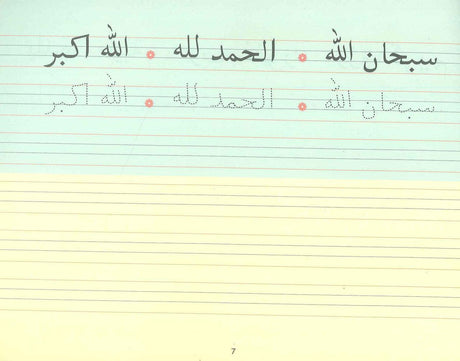 سبحان الله • الحمد لله • الله اكبر
سبحان الله • الحمد لله • الله اكبر
7